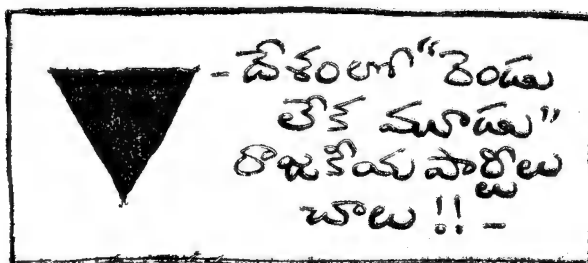 - దేశంలో "రెండు
లేక మూడు"
రాజకీయ పార్టీలు
చాలు !! -